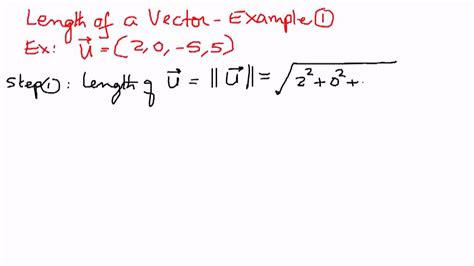 Length of a Vector - Example ①
Ex: u⃗ = (2, 0, -5, 5)
Step ①: Length of u⃗ = ‖u⃗‖ = √2² + 0² +